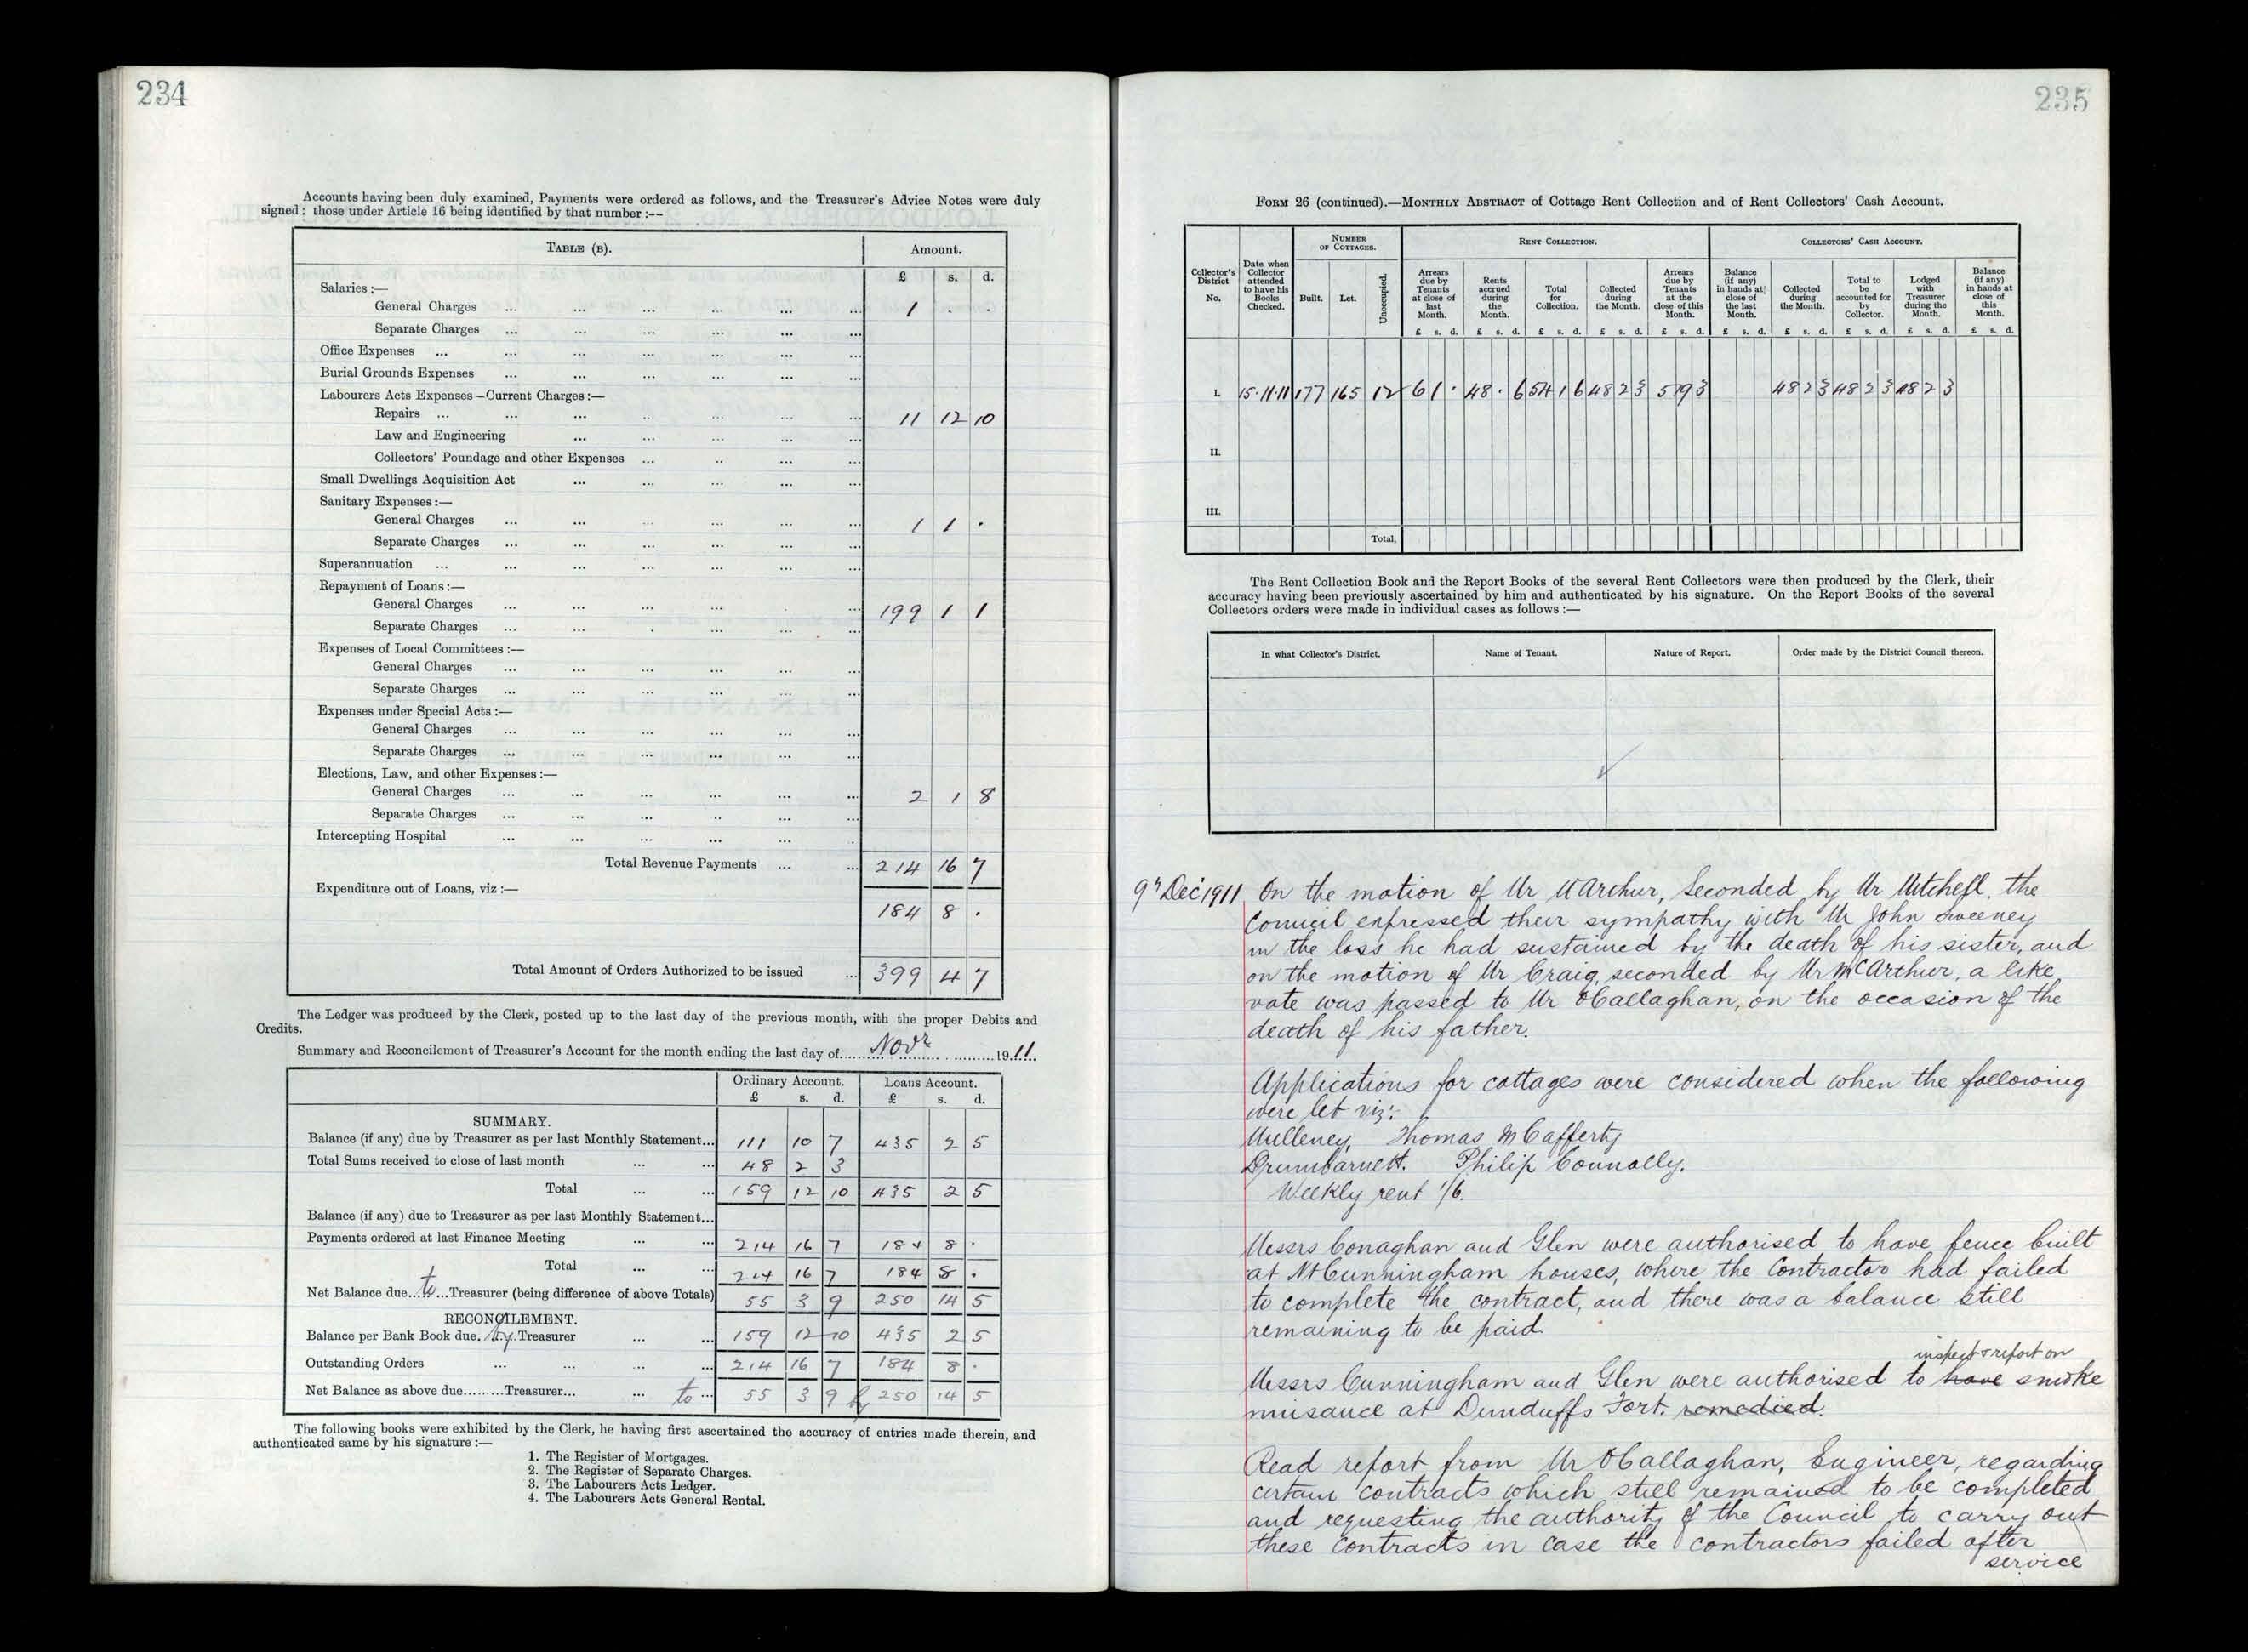 234
Accounts having been duly examined, Payments were ordered as follows, and the Treasurer's Advice Notes were duly
signed: those under Article 16 being identified by that number:--
TABLE (B). Amount.
£ s. d.
Salaries:—
General Charges ... 1 . .
Separate Charges ...
Office Expenses ...
Burial Grounds Expenses ...
Labourers Acts Expenses—Current Charges:—
Repairs ... 11 12 10
Law and Engineering ...
Collectors' Poundage and other Expenses ...
Small Dwellings Acquisition Act ...
Sanitary Expenses:—
General Charges ... 1 1 .
Separate Charges ...
Superannuation ...
Repayment of Loans:—
General Charges ... 199 1 1
Separate Charges ...
Expenses of Local Committees:—
General Charges ...
Separate Charges ...
Expenses under Special Acts:—
General Charges ...
Separate Charges ...
Elections, Law, and other Expenses:—
General Charges ... 2 1 8
Separate Charges ...
Intercepting Hospital ...
Total Revenue Payments ... 214 16 7
Expenditure out of Loans, viz:—
184 8 .
Total Amount of Orders Authorized to be issued ... 399 4 7
The Ledger was produced by the Clerk, posted up to the last day of the previous month, with the proper Debits and
Credits.
Summary and Reconcilement of Treasurer's Account for the month ending the last day of Novr 1911.
Ordinary Account. Loans Account.
£ s. d. £ s. d.
SUMMARY.
Balance (if any) due by Treasurer as per last Monthly Statement... 111 10 7 435 2 5
Total Sums received to close of last month ... 48 2 3
Total ... 159 12 10 435 2 5
Balance (if any) due to Treasurer as per last Monthly Statement...
Payments ordered at last Finance Meeting ... 214 16 7 184 8 .
Total ... 214 16 7 184 8 .
Net Balance due...to...Treasurer (being difference of above Totals) 55 3 9 250 14 5
RECONCILEMENT.
Balance per Bank Book due. by Treasurer ... 159 12 10 435 2 5
Outstanding Orders ... 214 16 7 184 8 .
Net Balance as above due.........Treasurer... to ... 55 3 9 by 250 14 5
The following books were exhibited by the Clerk, he having first ascertained the accuracy of entries made therein, and
authenticated same by his signature:—
1. The Register of Mortgages.
2. The Register of Separate Charges.
3. The Labourers Acts Ledger.
4. The Labourers Acts General Rental.
235
FORM 26 (continued).—MONTHLY ABSTRACT of Cottage Rent Collection and of Rent Collectors' Cash Account.
Collector's District No.
Date when Collector attended to have his Books Checked.
NUMBER OF COTTAGES.
Built. Let. Unoccupied.
RENT COLLECTION.
Arrears due by Tenants at close of last Month.
Rents accrued during the Month.
Total for Collection.
Collected during the Month.
Arrears due by Tenants at the close of this Month.
COLLECTORS' CASH ACCOUNT.
Balance (if any) in hands at close of the last Month.
Collected during the Month.
Total to be accounted for by Collector.
Lodged with Treasurer during the Month.
Balance (if any) in hands at close of this Month.
£ s. d. £ s. d. £ s. d. £ s. d. £ s. d. £ s. d. £ s. d. £ s. d. £ s. d. £ s. d.
I. 15.11.11 177 165 12 6 1 . 48 . 6 54 1 6 48 2 3 5 19 3 48 2 3 48 2 3 48 2 3
II.
III.
Total,
The Rent Collection Book and the Report Books of the several Rent Collectors were then produced by the Clerk, their
accuracy having been previously ascertained by him and authenticated by his signature. On the Report Books of the several
Collectors orders were made in individual cases as follows:—
In what Collector's District. Name of Tenant. Nature of Report. Order made by the District Council thereon.
9th Dec 1911 On the motion of Mr McArthur, Seconded by Mr Mitchell, the
Council expressed their sympathy with Mr John Sweeney
in the loss he had sustained by the death of his sister, and
on the motion of Mr Craig, seconded by Mr McArthur, a like
vote was passed to Mr O'Callaghan, on the occasion of the
death of his father.
Applications for cottages were considered when the following
were let viz:
Mulleney, Thomas McCafferty
Drumbarnett. Philip Connolly.
Weekly rent 1/6.
Messrs Conaghan and Glen were authorised to have fence built
at Nt Cunningham houses, where the Contractor had failed
to complete the contract, and there was a balance still
remaining to be paid.
inspect & report on
Messrs Cunningham and Glen were authorised to have smoke
nuisance at Dunduffs Fort. remedied.
Read report from Mr O'Callaghan, Engineer, regarding
certain contracts which still remained to be completed
and requesting the authority of the Council to carry out
these contracts in case the contractors failed after
service